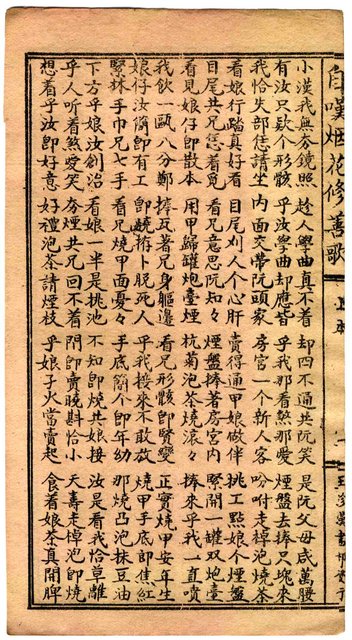 自嘆烟花修善歌
小漢我無夯鏡照 趁人學曲真不着 却四不通共阮笑 是阮父母咸萬腰
有汝只欵个形骸 乎汝學曲却應皆 乎我那看煞那愛 煙盤去捧只塊來
我恰失部恁請坐 內面交帶阮頭家 房官一個新人客 吩咐走棹泡燒茶
看娘行踏真好看 目尾刈人个心肝 賣得通甲娘做伴 挑工點娘个煙盤
目尾共兄恁着覓 看兄意思阮知々 煙盤捧著房宮內 緊開一罐双炮臺
看見娘仔即散本 用甲歸罐炮臺煙 杭菊泡茶燒滾々 捧來乎我一直噴
我飲一甌八分鄭 捧瓦著兄身軀邊 看兄形骸即賢變 正實燒甲安年生
娘仔汝簡即有工 即饒拵卜脫死人 乎我接來不敢放 燒甲手底即焦紅
緊林手巾兄七手 看兄燒甲面憂々 手底簡個即年幼 那燒凸泡抹豆油
下方乎娘汝創治 看娘一半是挑池 不知即燒共娘接 汝是看我恰草離
乎人听看煞愛笑 夯煙共兄回不着 問即賣晚斟恰小 天壽走棹泡即燒
想着乎汝即好意 好禮泡茶請煙枝 乎娘子火當賣起 食着娘茶真開脾